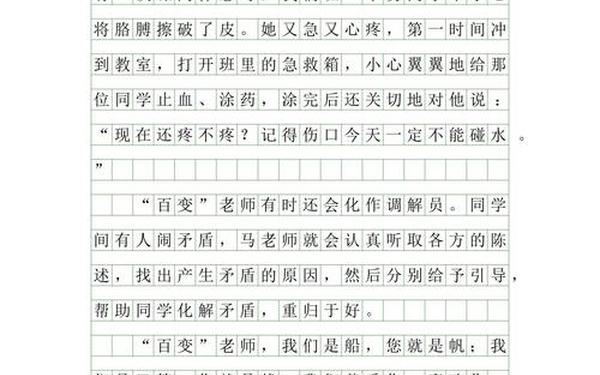 将胳膊擦破了皮。她又急又心疼，第一时间冲
到教室，打开班里的急救箱，小心翼翼地给那
位同学止血、涂药，涂完后还关切地对他说：
“现在还疼不疼？记得伤口今天一定不能碰水。
”
“百变”老师有时还会化作调解员。同学
间有人闹矛盾，马老师就会认真听取各方的陈
述，找出产生矛盾的原因，然后分别给予引导，
帮助同学化解矛盾，重归于好。
“百变”老师，我们是船，您就是帆；我